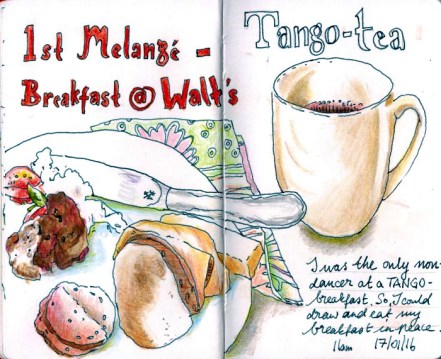 1st Melangé -
Breakfast @ Walt's
Tango-tea
I was the only non-
dancer at a TANGO-
breakfast. So, I could
draw and eat my
breakfast in peace.
11am 17/01/16